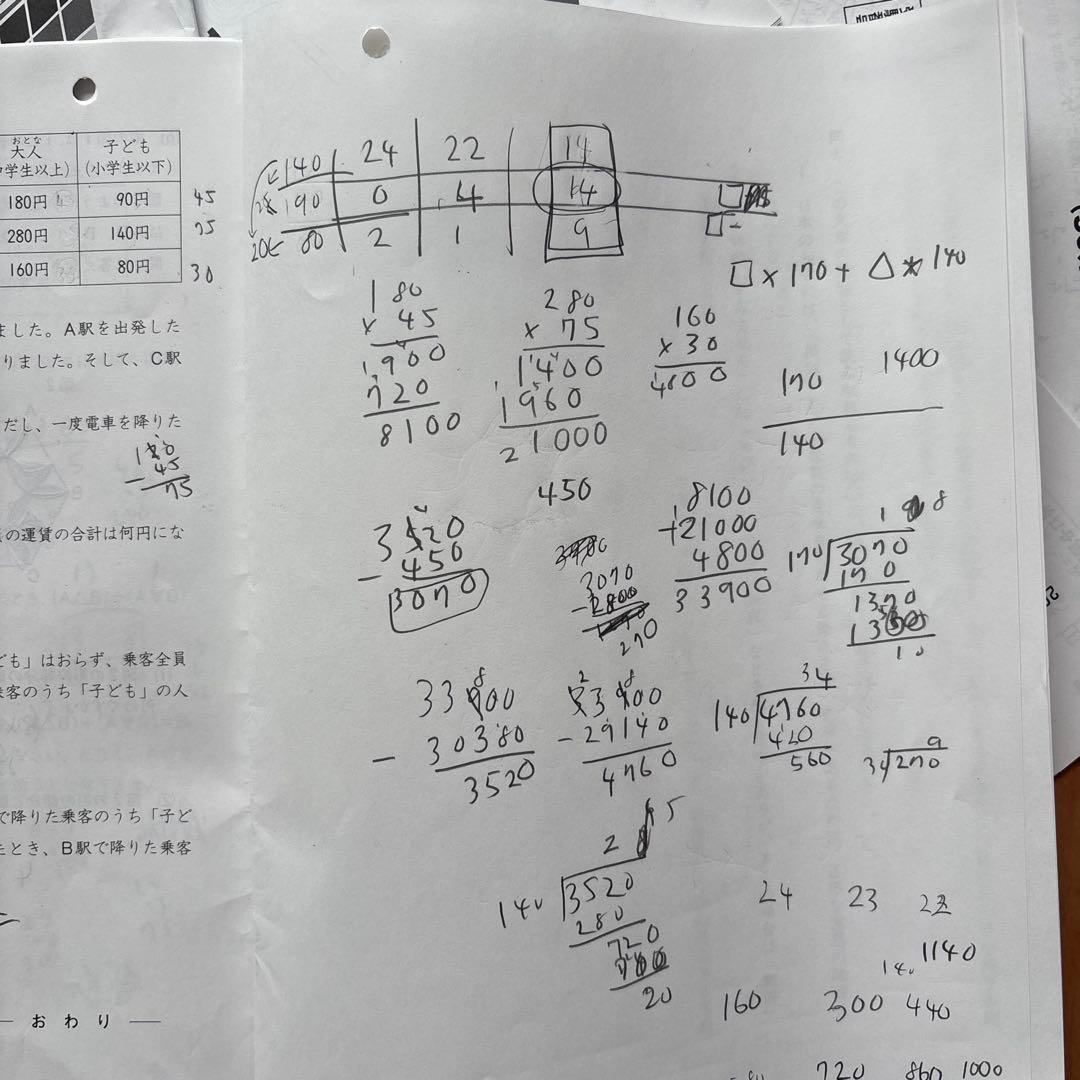 大人 子ども
おとな
学生以上) (小学生以下)
180円 90円 45
280円 140円 75
160円 80円 30
ました。A駅を出発した
りました。そして、C駅
だし、一度電車を降りた
120
45
75
の運賃の合計は何円にな
ども」はおらず、乗客全員
客のうち「子ども」の人
で降りた乗客のうち「子ど
たとき、B駅で降りた乗客
おわり
140 24 22 14
190 0 4 14 □
20 80 2 1 9 □-
□×170+△*140
180
× 45
900
720
8100
280
× 75
1400
1960
21000
160
× 30
4800
170 1400
140
450
3520
- 450
3070
3070
- 2800
270
8100
+21000
4800
33900
18
170 3070
170
1370
10
33900
- 30380
3520
33900
- 29140
4760
34
140 4760
420
560
9
270
25
140 3520
280
720
20
24 23 22
140 1140
160 300 440
720 860 1000